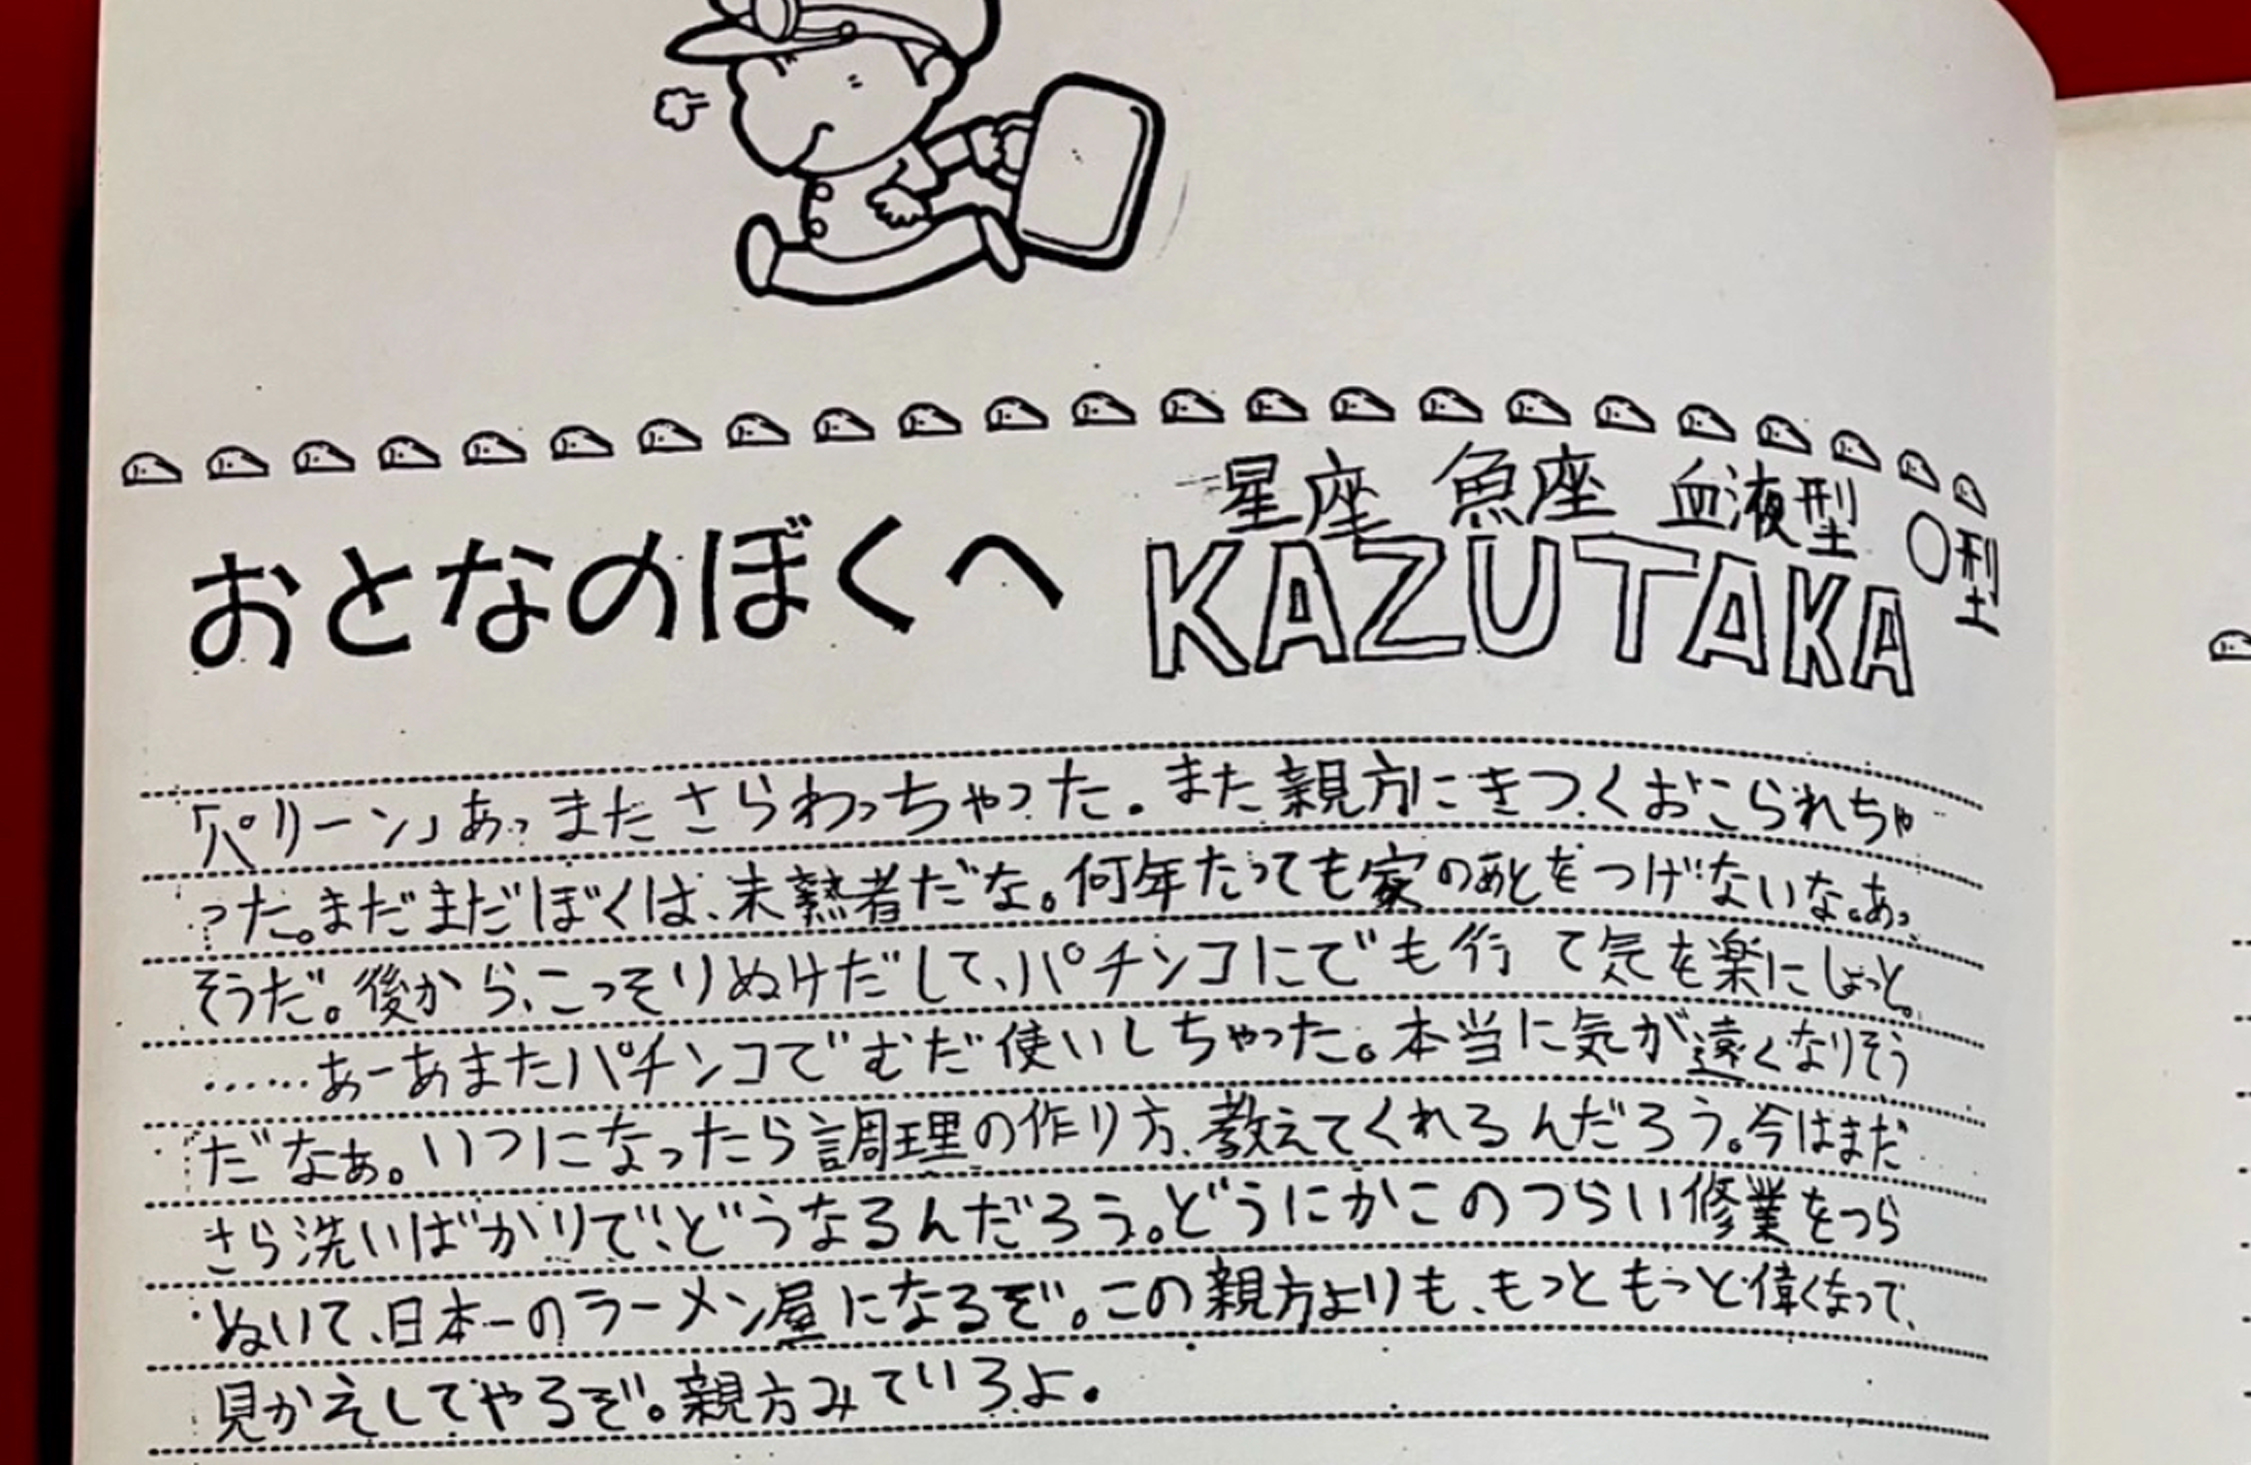 星座 魚座 血液型 O型
おとなのぼくへ KAZUTAKA
「パリーン」あっまたさらわっちゃった。また親方にきつくおこられちゃ
った。まだまだぼくは、未熟者だな。何年たっても家のあとをつげないな。あっ、
そうだ。後から、こっそりぬけだして、パチンコにでも行 て気を楽にしょっと。
……あーあまたパチンコでむだ使いしちゃった。本当に気が遠くなりそう
だなぁ。いつになったら調理の作り方、教えてくれるんだろう。今はまだ
さら洗いばかりで、どうなるんだろう。どうにかこのつらい修業をつら
ぬいて、日本一のラーメン屋になるぞ。この親方よりも、もっともっと偉くなって、
見かえしてやるぞ。親方みていろよ。